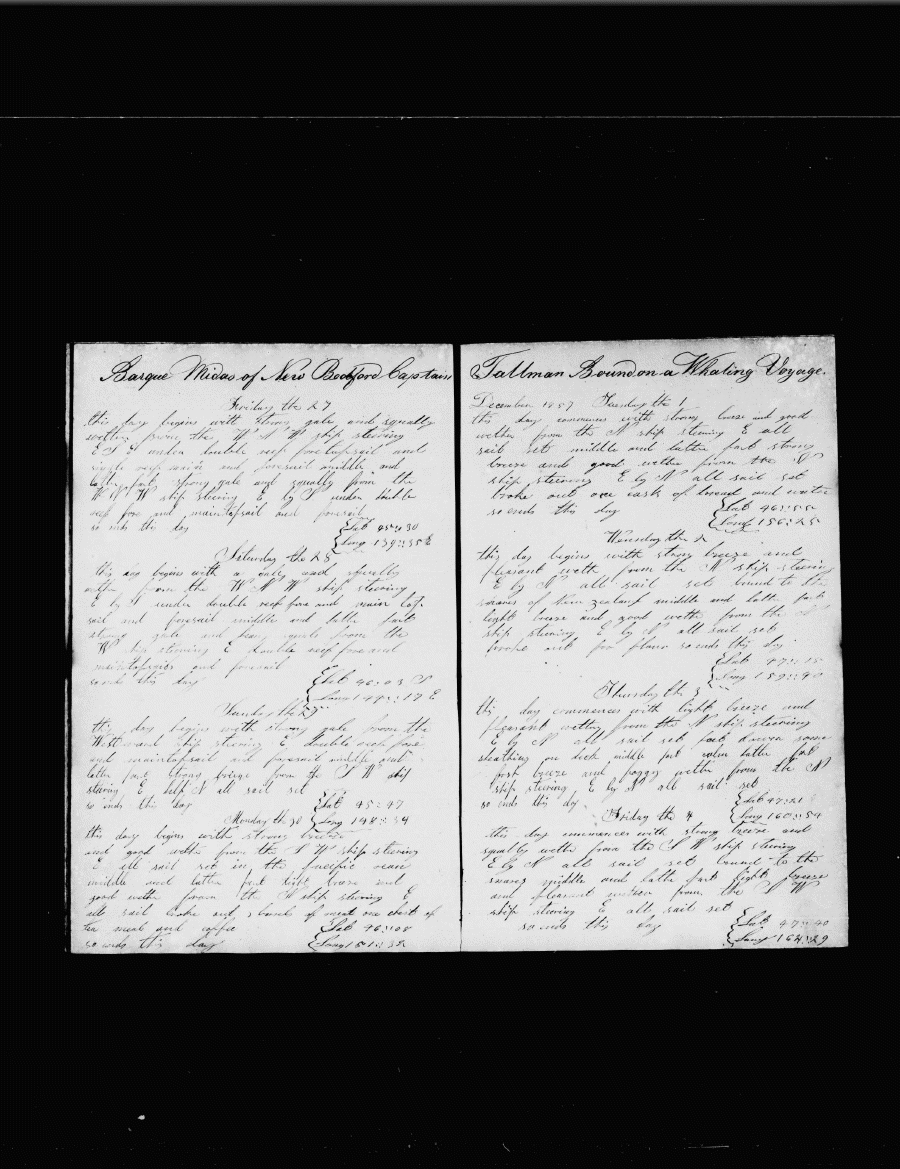 Barque Midas of New Bedford Captain
Friday the 27
this day begins with strong gale and squally
wether from the W N W ship steering
E S E under double reef foretopsail and
single reef main and foresail middle and
latter part strong gale and squally from the
W N W ship steering E by S under double
reef fore and maintopsail and foresail
so ends this day
Lat 45::30
Long 139::35 E
Saturday the 28
this day begins with a gale and squally
wether from the W N W ship steering
E by S under double reef fore and main top
sail and foresail middle and latter part
strong gale and heavy squals from the
W ship steering E double reef fore and
maintopsails and foresail
so ends this day
Lat 46::03 S
Long 144::17 E
Sunday the 29
this day begins with strong gale from the
Westward ship stering E double reef fore
and maintopsail and foresail middle part
latter part strong brieze from the S W ship
stering E half N all sail set
so ends this day
Lat 45::47
Long 148::54
Monday the 30
this day begins with strong breeze
and good wether from the S W ship steering
E all sail set in the pacific ocean
middle and latter part light breze and
good wether from the W ship stering E
all sail broke out of meat one chest of
tea meal and coffee
so ends this day
Lat 46::00
Long 151::32
Tallman Bound on a Whaling Voyage.
December 1857 Tuesday the 1
this day commences with strong breeze and good
wether from the N ship steering E all
sail set middle and latter part strong
breeze and good wether from the N
ship steering E by N all sail set
broke out one cask of bread and water
so ends this day
Lat 46::55
Long 156::25
Wensday the 2
this day begins with strong breeze and
pleasant weth from the N ship steering
E by N all sail set bound to the
snares of New zealand middle and latter part
light breeze and good wether from the N
ship steering E by N all sail set
broke out for flour so ends this day
Lat 47::15
Long 159::40
Thursday the 3
this day commences with light breeze and
pleasant wether from the N ship steering
E by N all sail set put down some
sheathing on deck middle part calm latter part
fresh breeze and foggy wether from the N
ship stering E by N all sail set
so ends this day
Lat 47::21
Long 160::54
Friday the 4
this day commences with strong breeze and
squally wether from the S W ship stering
E by N all sail set bound to the
snares middle and latter part light breeze
and pleasant wether from the W
ship steering E all sail set
so ends this day
Lat 47::40
Long 164::29